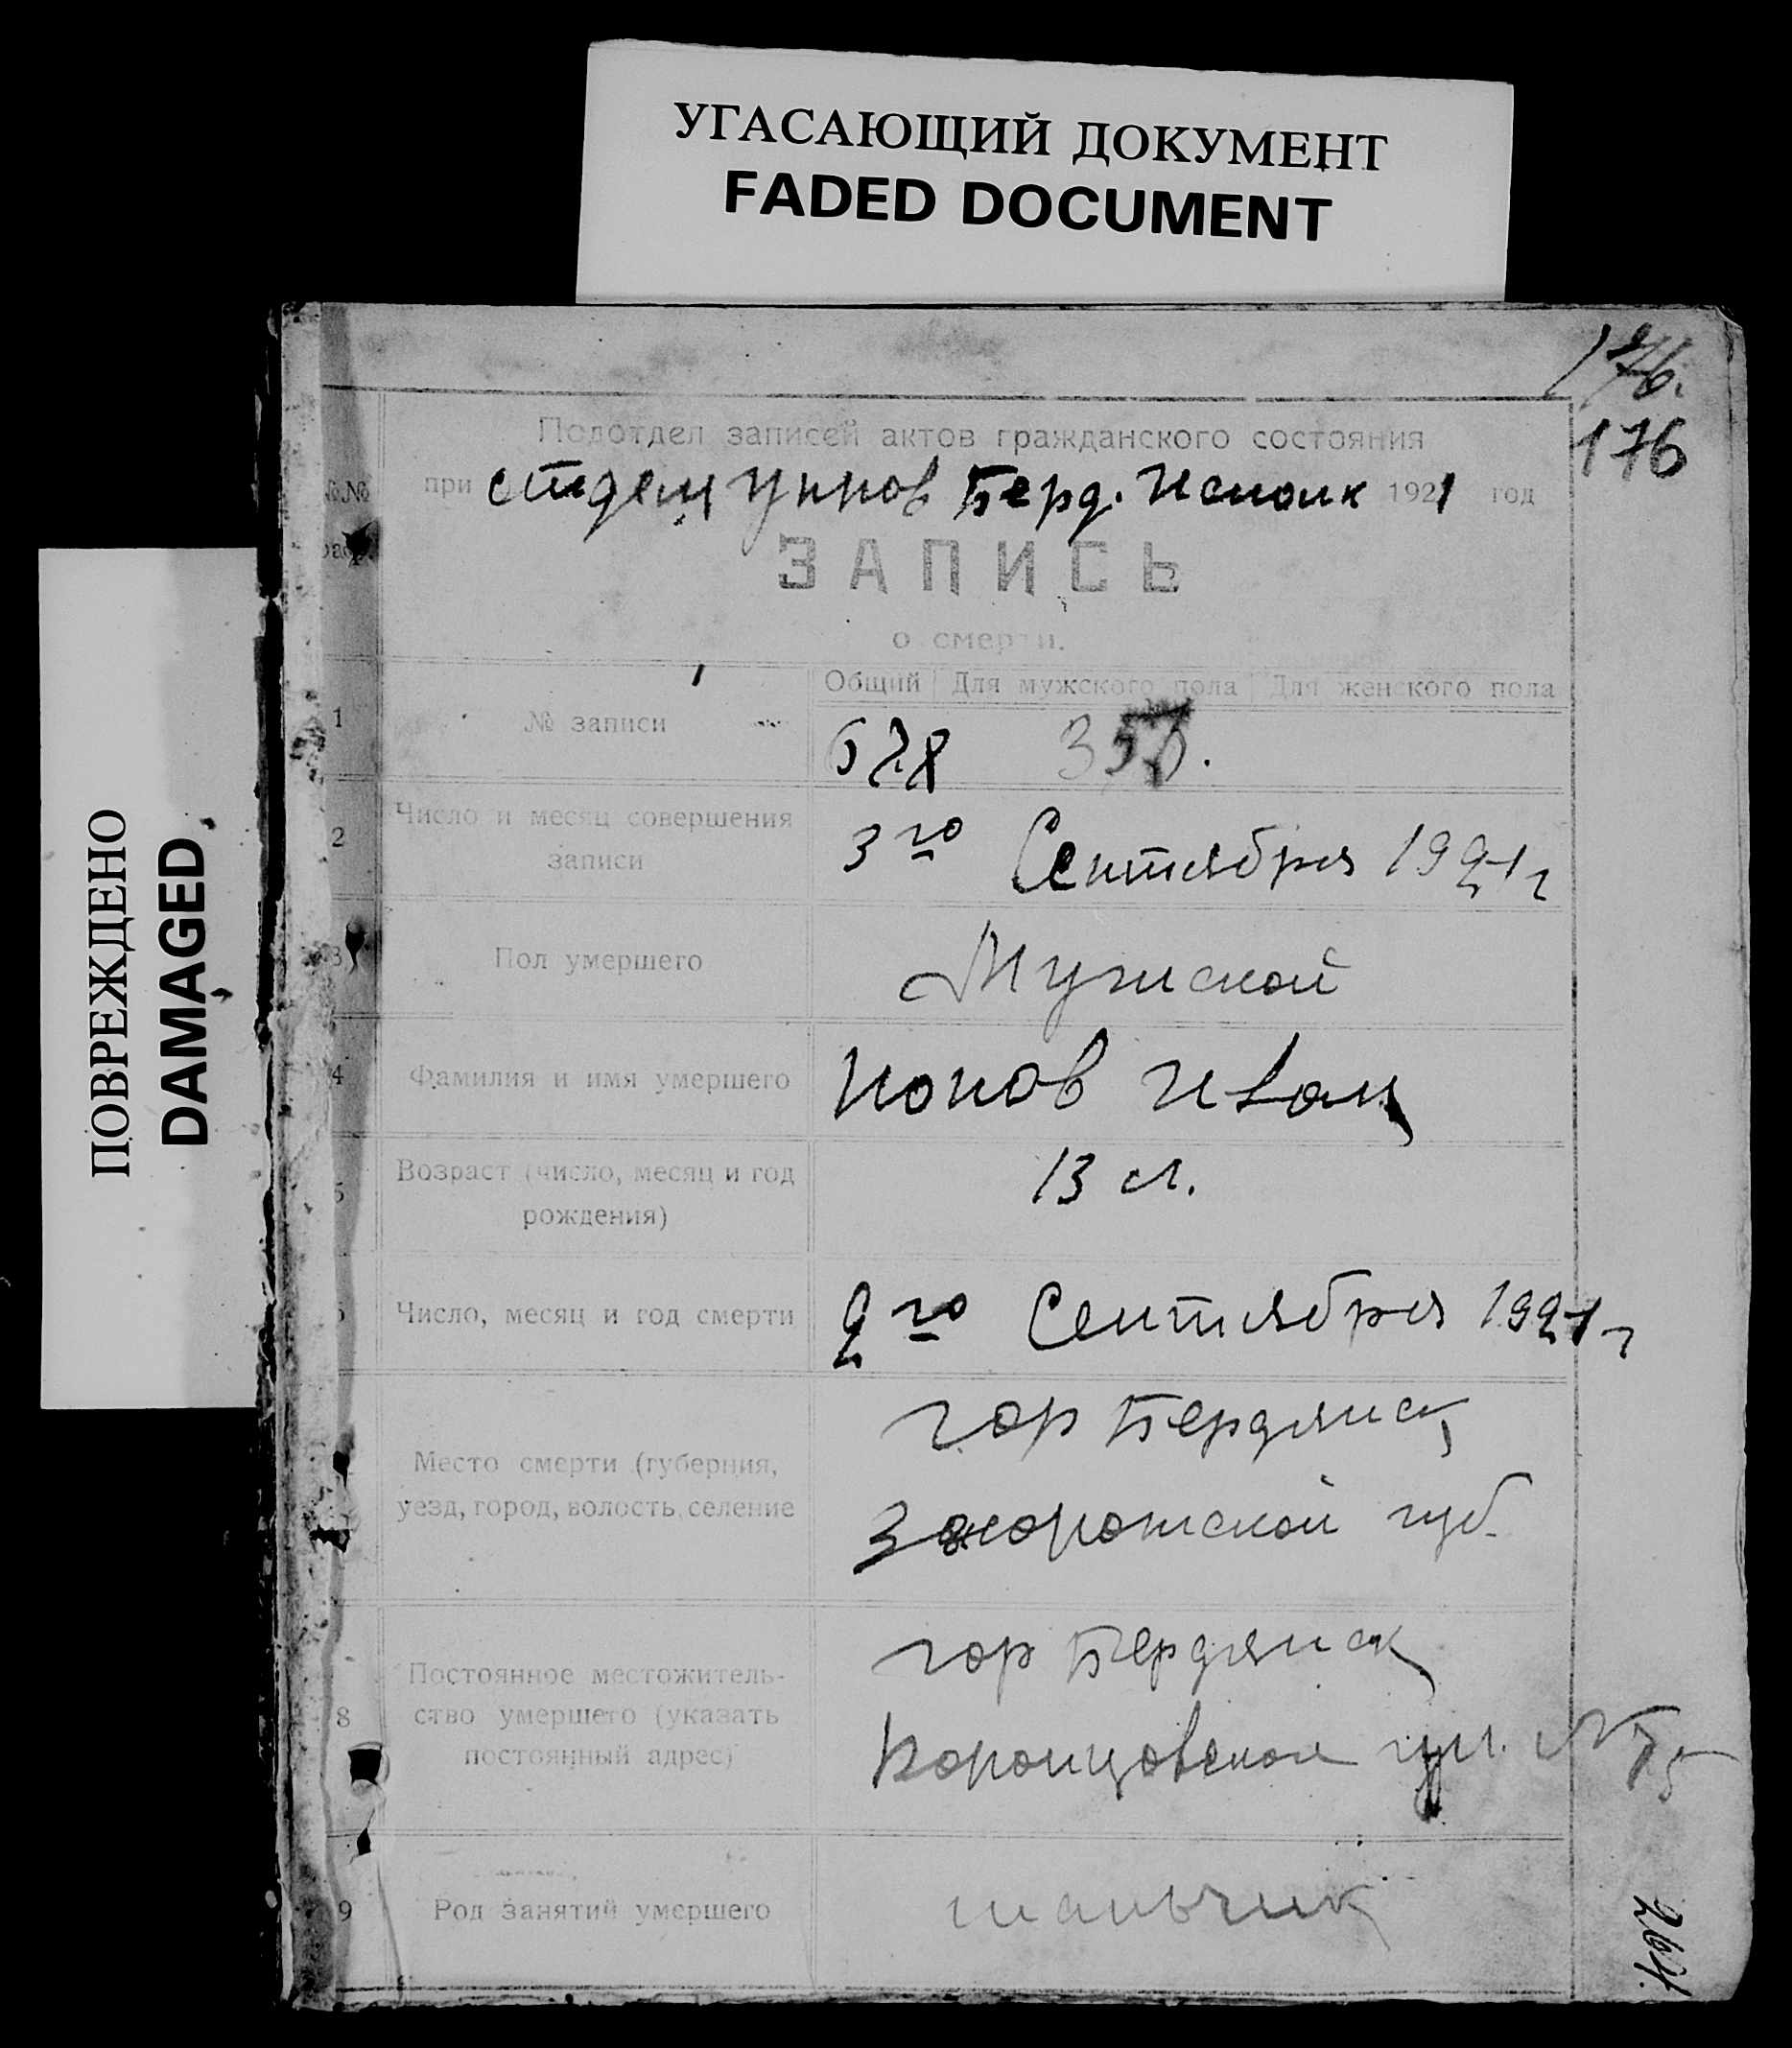 УГАСАЮЩИЙ ДОКУМЕНТ
FADED DOCUMENT
ПОВРЕЖДЕНО
DAMAGED
176.
176
Подотдел записей актов гражданского состояния
№№ при Берд. Исполк 1921 год
ЗАПИСЬ
о смерти.
Общий Для мужского пола Для женского пола
1 № записи 678
2 Число и месяц совершения записи 3го Сентября 1921 г
3 Пол умершего Мужской
4 Фамилия и имя умершего Попов Иван
5 Возраст (число, месяц и год рождения) 13 л.
Число, месяц и год смерти 2го Сентября 1921 г
Место смерти (губерния, уезд, город, волость, селение гор Бердянск
Запорожской губ.
8 Постоянное местожительство умершего (указать постоянный адрес) гор Бердянск
Воронцовская ул. №
9 Род занятий умершего мальчик
264.